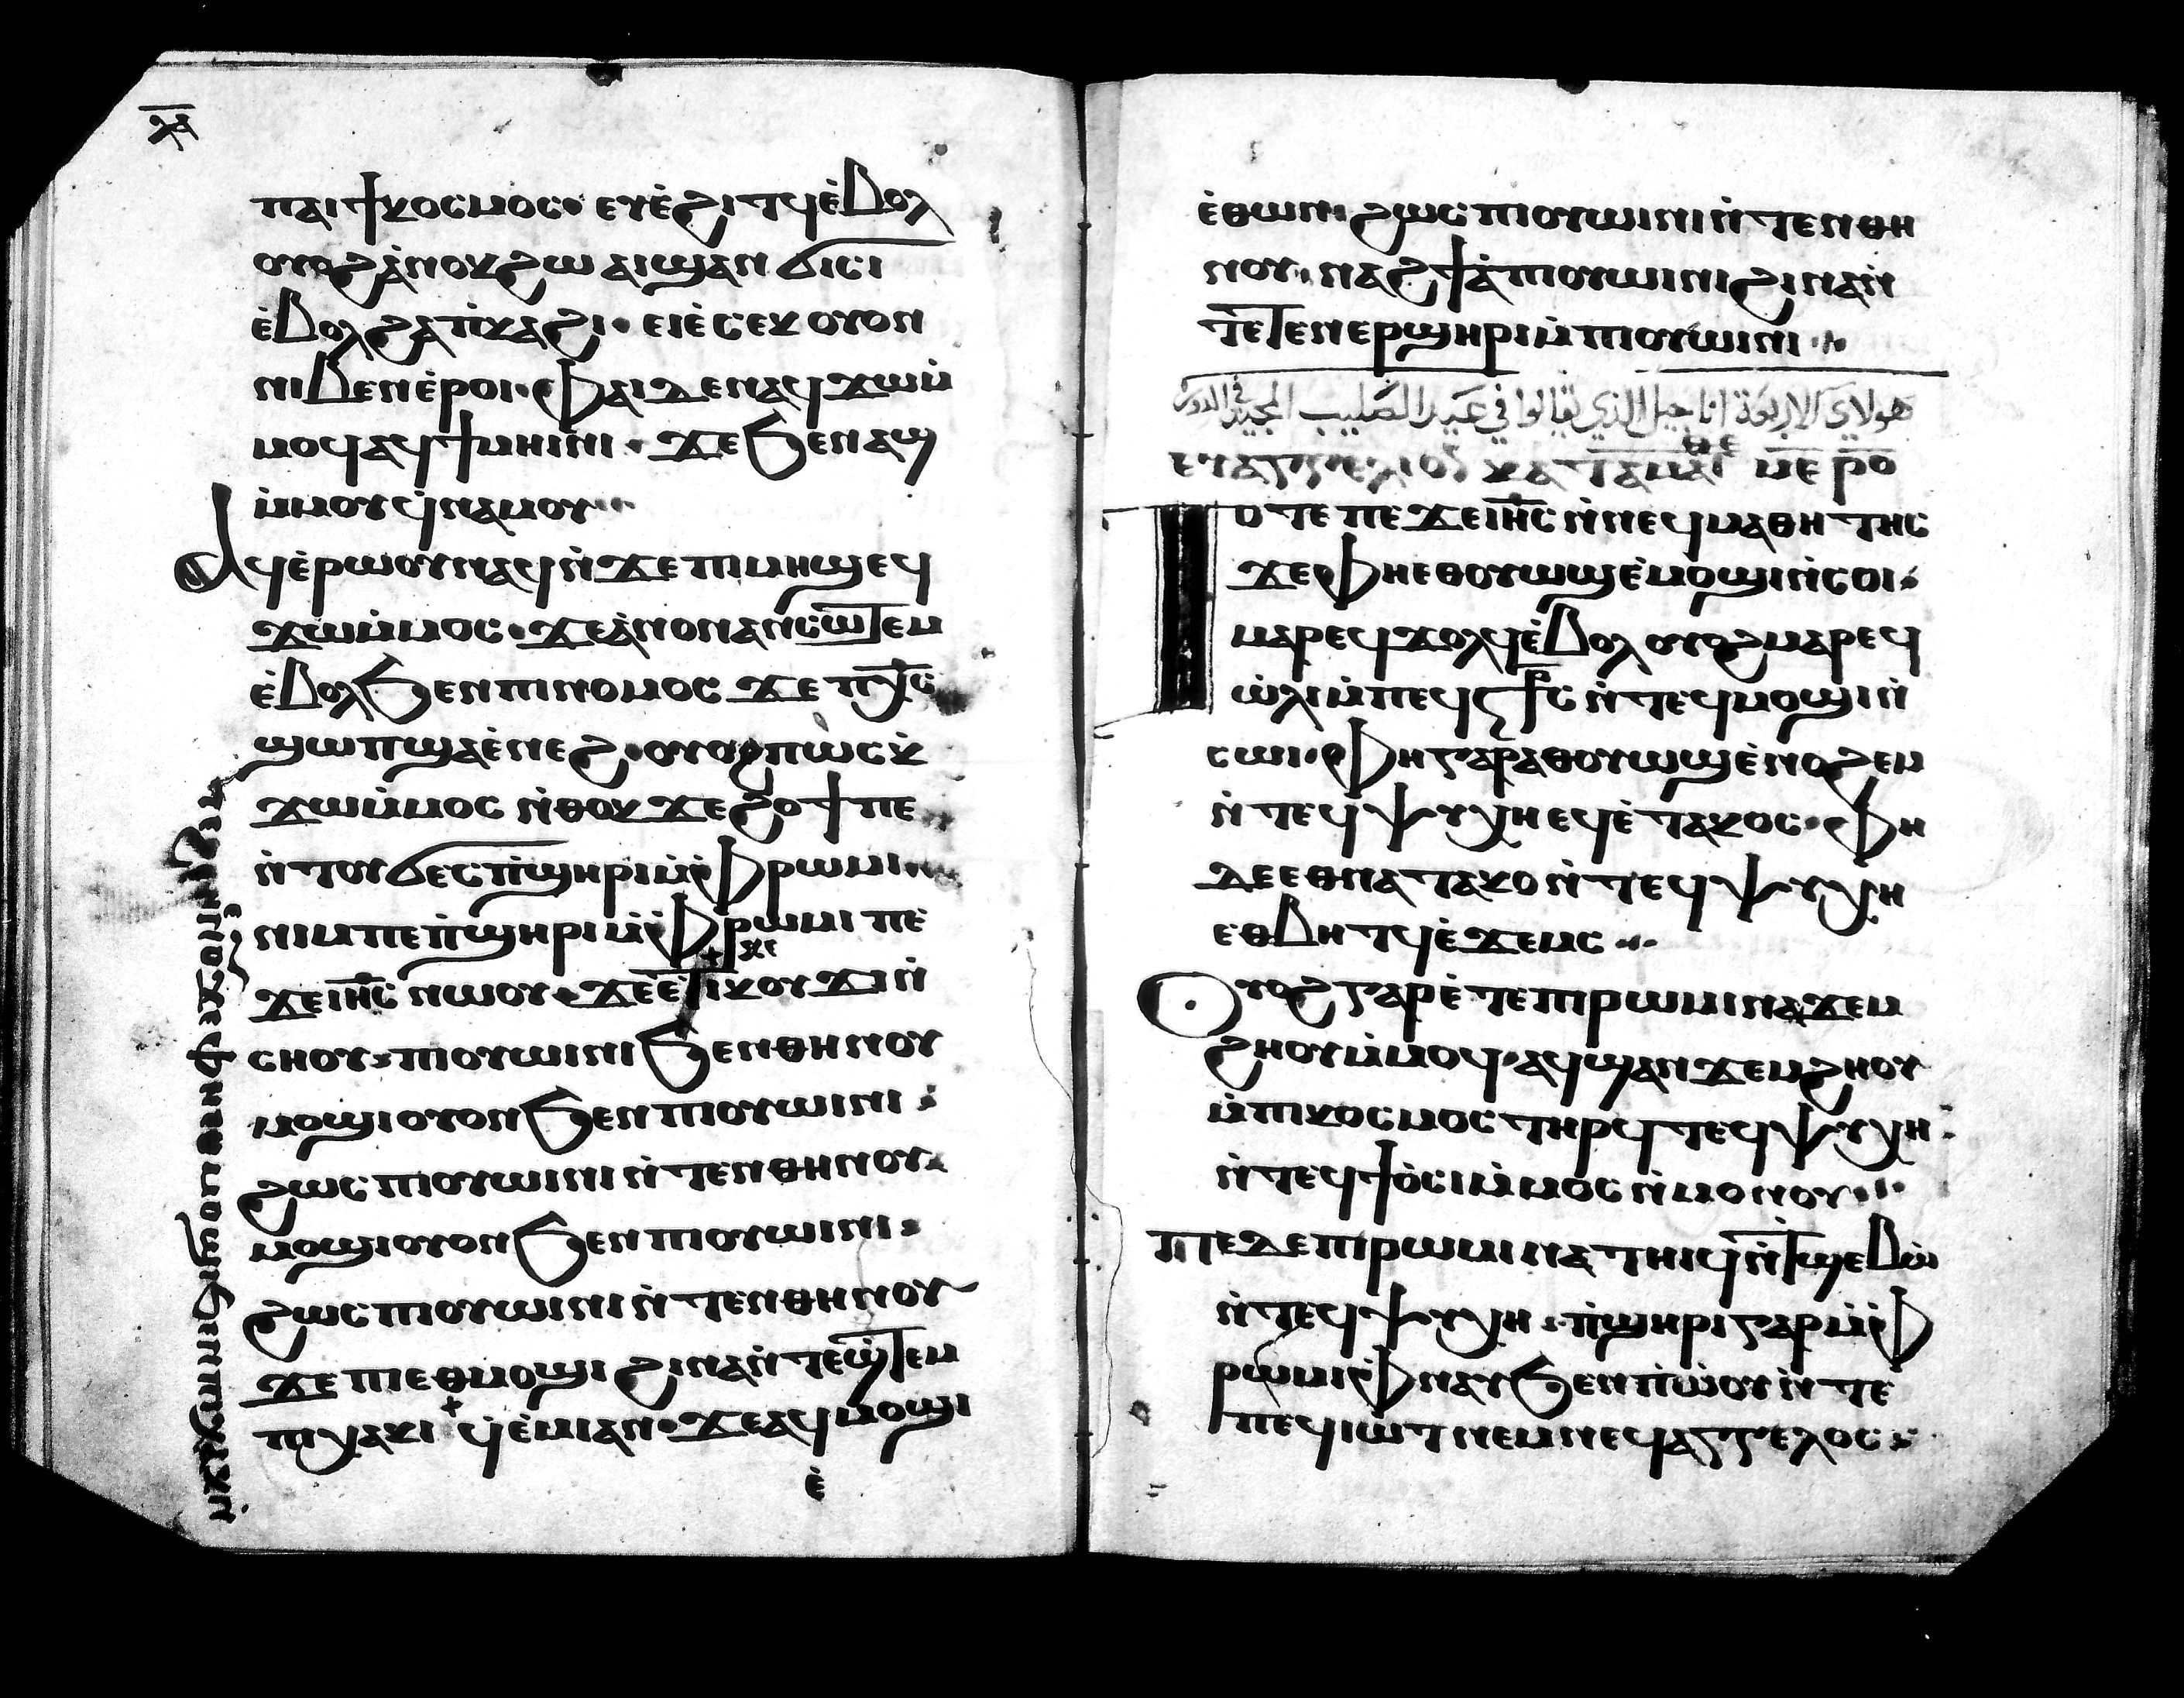 ⲗⲁ
ⲡⲁⲓϯⲕⲟⲥⲙⲟⲥ· ⲉⲩⲉ̀ϩⲓⲧϥⲉ̀ⲃⲟⲗ
ⲟⲩⲟϩⲁ̀ⲛⲟⲕϩⲱ ⲁⲓϣⲁⲛϭⲓⲥⲓ
ⲉ̀ⲃⲟⲗϩⲁⲡ̀ⲕⲁϩⲓ· ⲉⲓⲉ̀ⲥⲉⲕ ⲟⲩⲟⲛ
ⲛⲓⲃⲉⲛⲉ̀ⲣⲟⲓ· ⲫⲁⲓⲇⲉⲛⲁϥϫⲱⲙ̀
ⲙⲟϥⲁϥϯⲙⲏⲓⲛⲓ· ϫⲉϧⲉⲛⲁϣ
ⲙ̀ⲙⲟⲩϥⲛⲁⲙⲟⲩ
ⲁϥⲉ̀ⲣⲱⲟⲩⲛⲁϥⲛ̀ϫⲉⲡⲓⲙⲏϣⲉϥ
ϫⲱⲙ̀ⲙⲟⲥ· ϫⲉⲁ̀ⲛⲟⲛⲁⲛⲥⲱⲧⲉⲙ
ⲉ̀ⲃⲟⲗϧⲉⲛⲡⲓⲛⲟⲙⲟⲥ ϫⲉ ⲡⲭ̅ⲥ̅
ϣⲱⲡϣⲁⲉ̀ⲛⲉϩ· ⲟⲩⲟϩⲡⲱⲥⲕ̀
ϫⲱⲙ̀ⲙⲟⲥ ⲛ̀ⲑⲟⲕ ϫⲉϩⲟϯⲡⲉ
ⲛ̀ⲧⲟⲩϭⲉⲥⲡ̀ϣⲏⲣⲓⲙ̀ⲫⲣⲱⲙⲓ
ⲛⲓⲙⲡⲉⲡ̀ϣⲏⲣⲓⲙ̀ⲫⲣⲱⲙⲓ ⲡⲉ
ϫⲉⲓⲏ̅ⲥ̅ ⲛⲱⲟⲩ· ϫⲉⲉ̀ⲧⲓⲕⲟⲩϫⲓⲛ̀
ⲥⲏⲟⲩ· ⲡⲓⲟⲩⲱⲓⲛⲓϧⲉⲛⲑⲏⲛⲟⲩ
ⲙⲟϣⲓⲟⲩⲟⲛϧⲉⲛⲡⲓⲟⲩⲱⲓⲛⲓ
ϩⲱⲥⲡⲓⲟⲩⲱⲓⲛⲓⲛ̀ⲧⲉⲛⲑⲏⲛⲟⲩ
ⲙⲟϣⲓⲟⲩⲟⲛϧⲉⲛⲡⲓⲟⲩⲱⲓⲛⲓ
ϩⲱⲥⲡⲓⲟⲩⲱⲓⲛⲓⲛ̀ⲧⲉⲛⲑⲏⲛⲟⲩ
ϫⲉⲡⲉⲑⲙⲟϣⲓ ϩⲓⲛⲁⲛ̀ⲧⲉϣⲧⲉⲙ
ⲡⲓⲭⲁⲕⲓ ϥⲉ̀ⲙⲓⲁⲛ· ϫⲉⲁϥⲙⲟϣⲓ
ⲉ̀
ⲉ̀ⲑⲱⲛ· ϩⲱⲥⲡⲓⲟⲩⲱⲓⲛⲓⲛ̀ⲧⲉⲛⲑⲏ
ⲛⲟⲩ· ⲛⲁϩϯⲁ̀ⲡⲓⲟⲩⲱⲓⲛⲓϩⲓⲛⲁⲛ̀
ⲧⲉⲧⲉⲛⲉⲣϣⲏⲣⲓⲙ̀ⲡⲓⲟⲩⲱⲓⲛⲓ
هولاي الاربعة اناجيل الذي يقالوا في عيد الصليب المجيد في الدورة
ⲉⲩⲁⲅⲅⲉⲗⲓⲟⲛ ⲕⲁⲧⲁⲙⲁⲧⲑⲉ ⲕⲉ ⲣⲟ
ⲧⲟⲧⲉ ⲡⲉϫⲉⲓⲏ̅ⲥ̅ ⲛ̀ⲛⲉϥⲙⲁⲑⲏⲧⲏⲥ
ϫⲉⲫⲏⲉⲑⲟⲩⲱϣⲉ̀ⲙⲟϣⲓⲛ̀ⲥⲟⲓ
ⲙⲁⲣⲉϥϫⲟⲗϥⲉ̀ⲃⲟⲗ ⲟⲩⲟϩⲙⲁⲣⲉϥ
ⲱ̀ⲗⲓⲙ̀ⲡⲉϥⲥⳁⲥ ⲛ̀ⲧⲉϥⲙⲟϣⲓⲛ̀
ⲥⲱⲓ· ⲫⲏⲅⲁⲣⲁⲑⲟⲩⲱϣⲉ̀ⲛⲟϩⲉⲙ
ⲛ̀ⲧⲉϥⲯⲩⲭⲏⲉϥⲉ̀ⲧⲁⲕⲟⲥ· ⲫⲏ
ⲇⲉⲉⲑⲛⲁⲧⲁⲕⲟⲛ̀ⲧⲉϥⲯⲩⲭⲏ
ⲉⲑⲃⲏⲧϥⲉ̀ϫⲉⲙⲥ
ⲟⲩⲟϩⲅⲁⲣⲉ̀ⲧⲉⲡⲓⲣⲱⲙⲓⲛⲁϫⲉⲙ
ϩⲏⲟⲩⲙ̀ⲙⲟϥ· ⲁϥϣⲁⲛϫⲉⲙϩⲏⲟⲩ
ⲙ̀ⲡⲓⲕⲟⲥⲙⲟⲥⲧⲏⲣϥⲧⲉϥⲯⲩⲭⲏ
ⲛ̀ⲧⲉϥϯⲟ̀ⲥⲓⲙ̀ⲙⲟⲥⲛ̀ⲙⲟⲛⲟⲩ
ⲡⲉⲇⲉⲡⲓⲣⲱⲙⲓⲛⲁⲧⲏⲓϥⲛ̀ⲧϣⲉⲃⲓⲱ̀
ⲛ̀ⲧⲉϥⲯⲩⲭⲏ· ⲡ̀ϣⲏⲣⲓⲅⲁⲣⲙ̀ⲫ
ⲣⲱⲙⲓⲫⲛⲁⲩϧⲉⲛⲡ̀ⲱ̀ⲟⲩⲛ̀ⲧⲉ
ⲡⲉϥⲓⲱⲧⲛⲉⲙⲛⲉϥⲁⲅⲅⲉⲗⲟⲥ